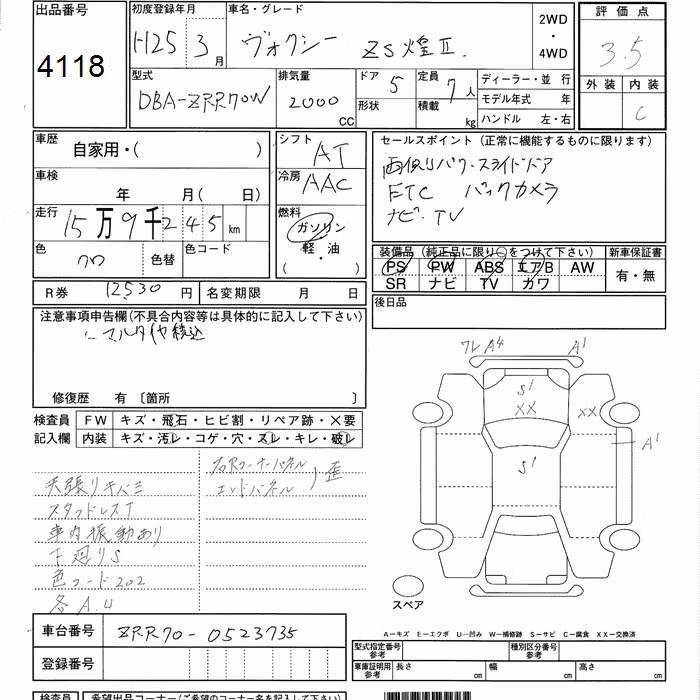 出品番号 初度登録年月 車名・グレード 2WD ・ 4WD 評価点
4118 H25 3月 ヴォクシー ZS煌Ⅱ. 3.5
型式 排気量 ドア 定員 ディーラー・並 行 外装 内装
DBA-ZRR70W 2000 CC 5 形状 7人 積載 kg モデル年式 年 C
ハンドル 左・右
車歴 自家用・( ) シフト AT セールスポイント（正常に機能するものに限ります）
車検 年 月( 日) 冷房 AAC 両側パワースライドドア
ETC バックカメラ
走行 15万9千245km 燃料 ガソリン ナビ・TV
色 クロ 色替 色コード 軽・油 ( )
装備品（純正品に限り○をつけて下さい） 新車保証書
PS PW ABS エアB AW 有・無
SR ナビ TV カワ
R券 12530円 名変期限 月 日 後日品
注意事項申告欄(不具合内容等は具体的に記入して下さい)
修復歴 有〔箇所 〕
ワレ A4 A1
S1
XX XX
A1
S1
検査員 FW キズ・飛石・ヒビ割・リペア跡・×要
記入欄 内装 キズ・汚レ・コゲ・穴・スレ・キレ・破レ
天張りキバミ 右Rコーナーパネル
スタッドレスT エンドパネル ）歪
車内振動あり
下廻りS
色コード202
各A.U
スペア
車台番号 ZRR70-0523735
登録番号
A－キズ E－エクボ U－凹み W－補修跡 S－サビ C－腐食 XX－交換済
型式指定番号 参考 種別区分番号 参考
車庫証明用 参考 長さ 幅 高さ
検査員 希望出品コーナー(ご希望のコーナー名を記入下さい)